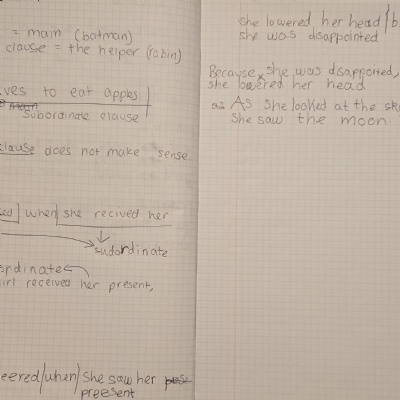 = main (batman)
clause = the helper (robin)
ves to eat apples
main
Subordinate clause
clause does not make sense
when she recived her
subordinate
ordinate
irl received her present,
eered/when/she saw her
preesent
she lowered her head/b
she was disappointed
Because she was disapported,
she lowered her head
as As she looked at the sk
She saw the moon.